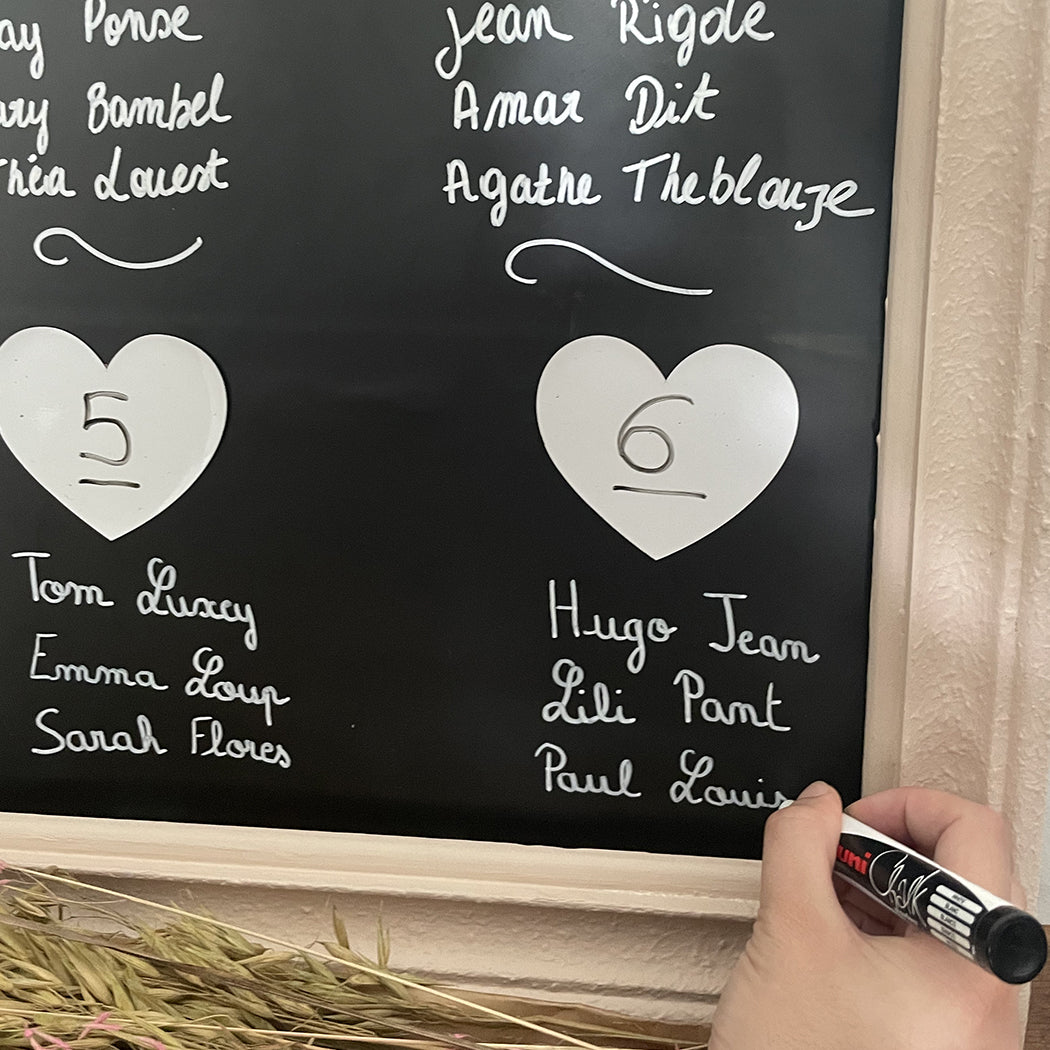 Ponse
Bambel
Théa Louest
Jean Rigole
Amar Dit
Agathe Theblouze
5
6
Tom Luxcy
Emma Loup
Sarah Flores
Hugo Jean
Lili Pant
Paul Louis
uni Chalk